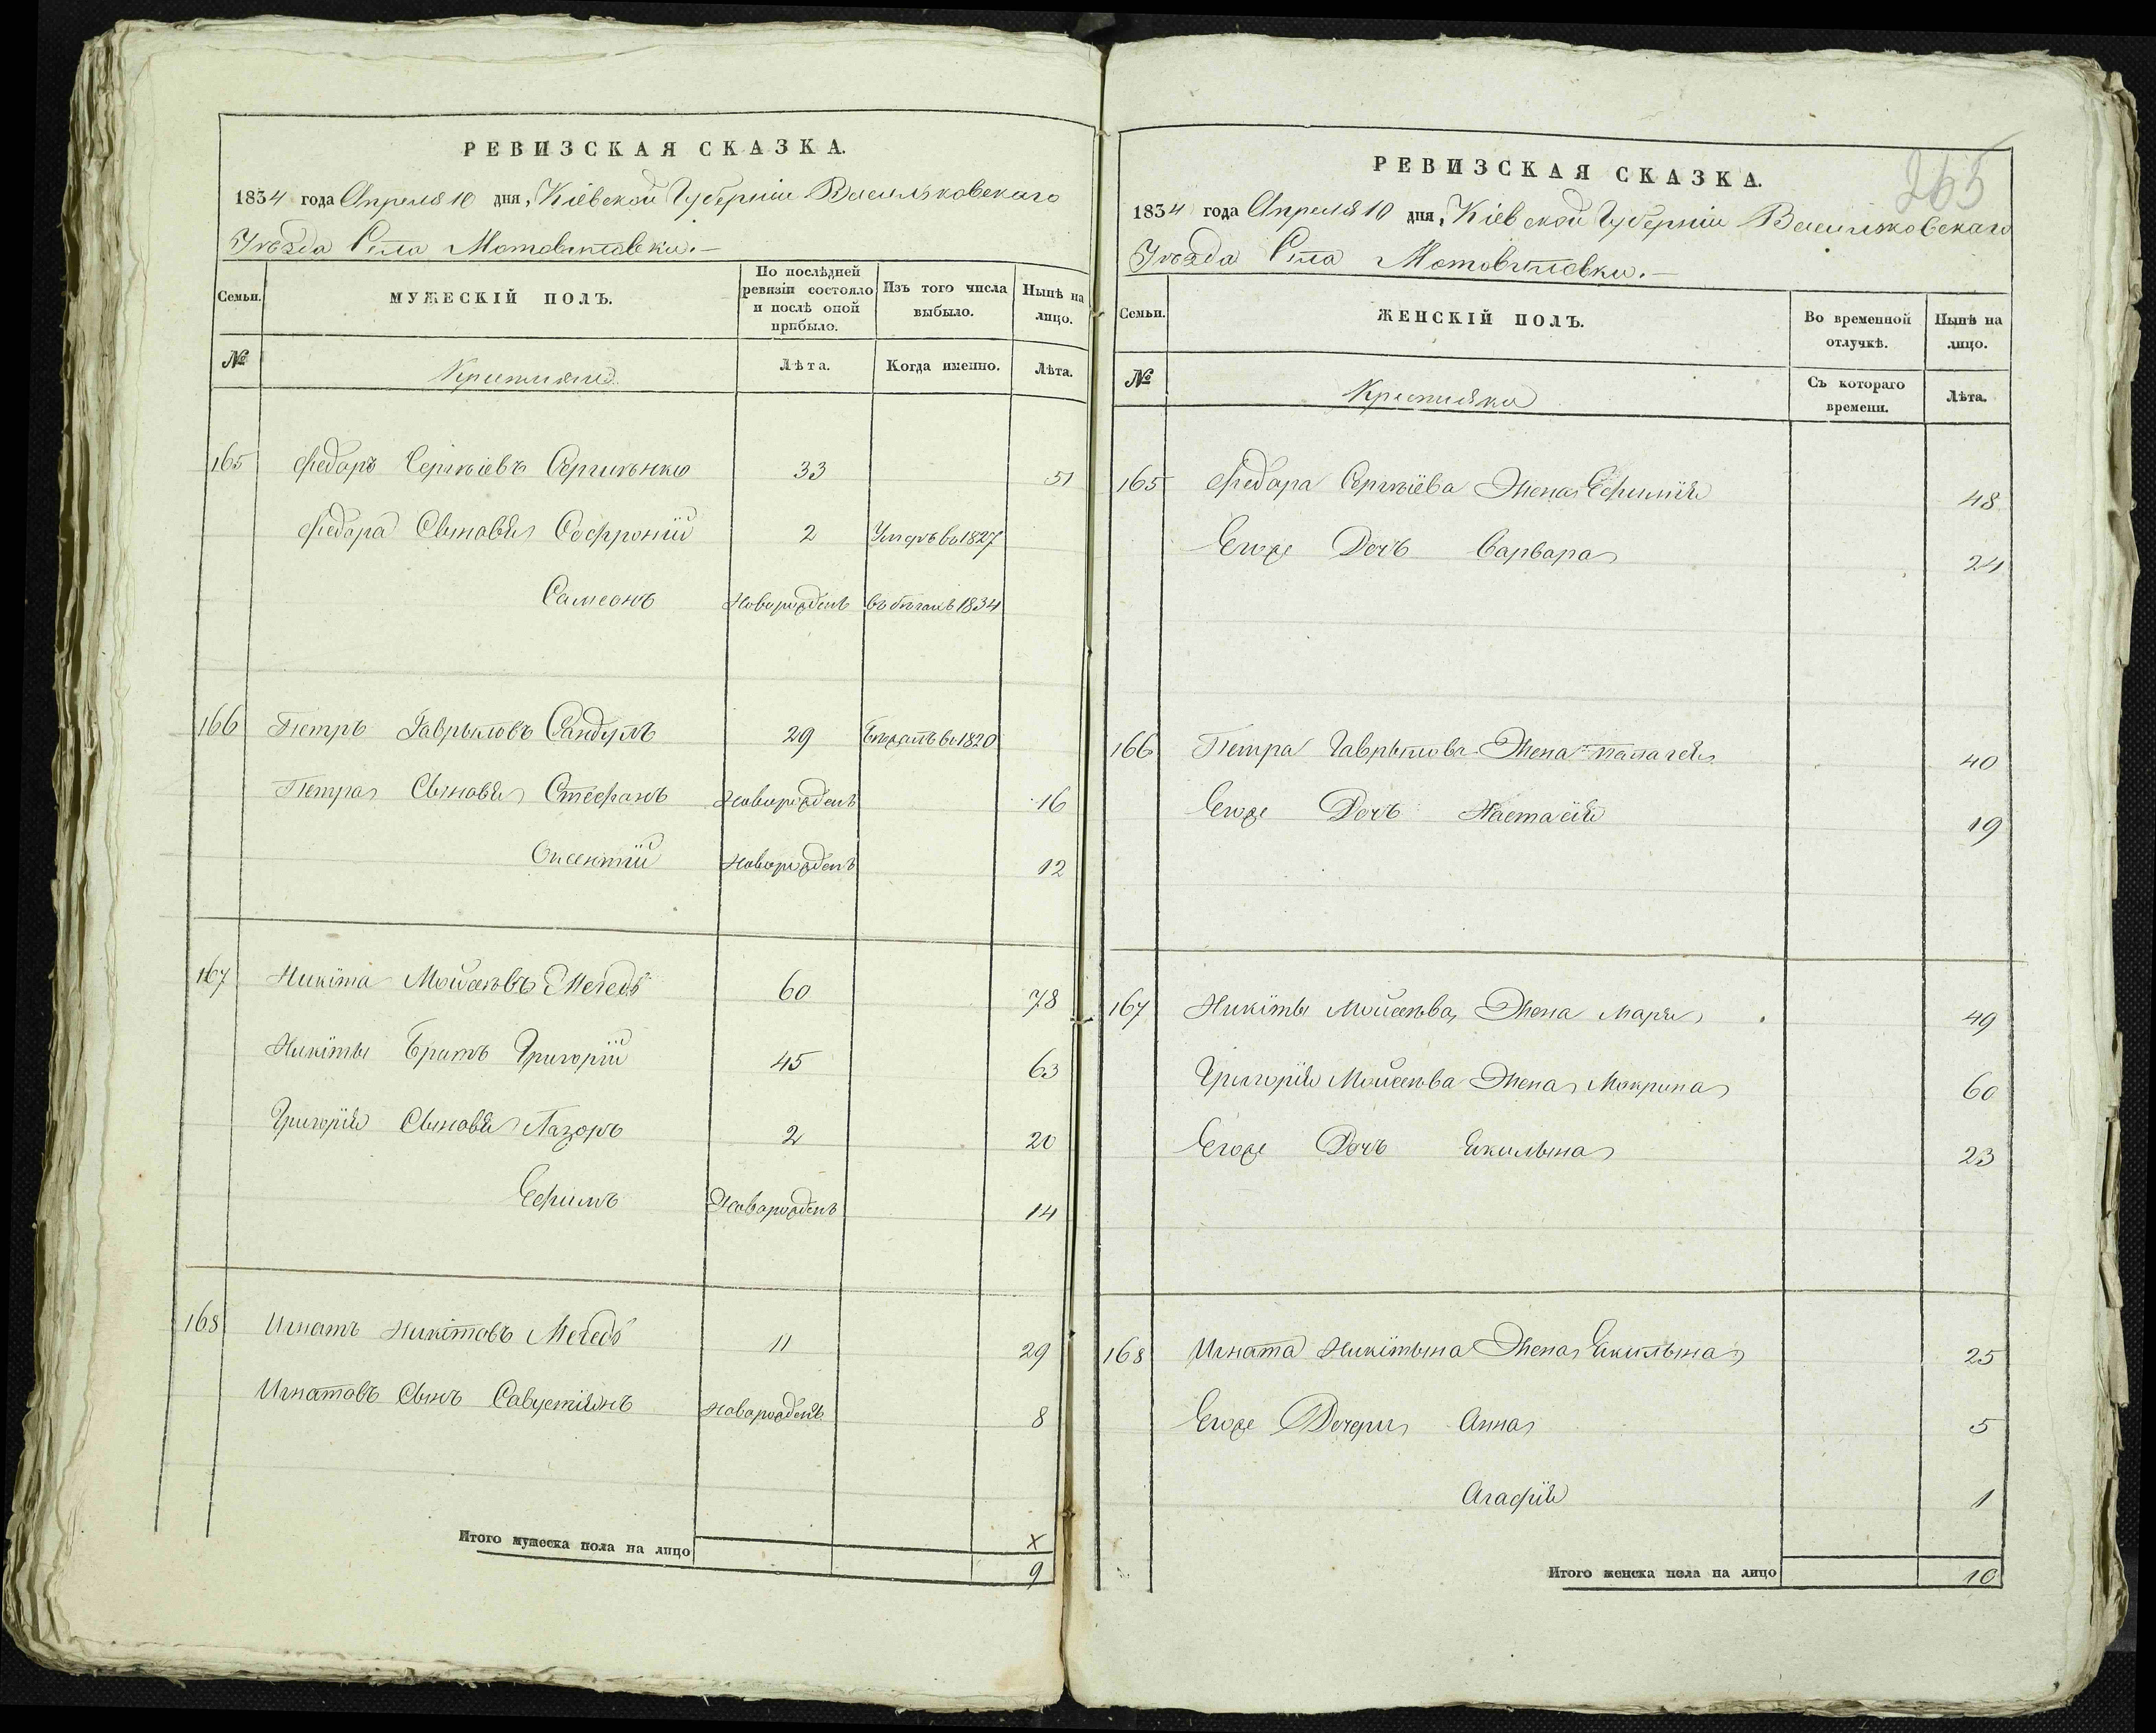 РЕВИЗСКАЯ СКАЗКА.
1834 года Апреля 10 дня, Кіевской Губерніи Васильковскаго
Уѣзда Села Мотовиловки.
Семьи.
МУЖЕСКІЙ ПОЛЪ.
По послѣдней ревизіи состояло и послѣ оной прибыло.
Изъ того числа выбыло.
Нынѣ на лицо.
№
Крестьяне
Лѣта.
Когда именно.
Лѣта.
165 Федоръ Сергѣіевъ Сергиѣнко 33 51
Федора Сыновья Софроній 2 Умеръ въ 1827
Самсонъ Новорожденъ въ бѣгахъ 1834
166 Петръ Гаврыловъ Сандулъ 29 Бѣжалъ въ 1820
Петра Сыновья Стефанъ Новорожденъ 16
Оксентій Новорожденъ 12
167 Никіта Мойсеѣвъ 60 78
Никіты Братъ Григорій 45 63
Григорія Сыновья Лазоръ 2 20
Ефимъ Новорожденъ 14
168 Игнатъ Никітовъ 11 29
Игнатовъ Сынъ Савустіянъ Новорожденъ 8
Итого мужеска пола на лицо
х
9
265
РЕВИЗСКАЯ СКАЗКА.
1834 года Апреля 10 дня, Кіевской Губерніи Васильковскаго
Уѣзда Села Мотовиловки.
Семьи.
ЖЕНСКІЙ ПОЛЪ.
Во временной отлучкѣ.
Нынѣ на лицо.
№
Крестьянки
Съ котораго времени.
Лѣта.
165 Федора Сергѣіева Жена Ефимія 48
Егоже Дочъ Варвара 24
166 Петра Гаврылова Жена Палагея 40
Егоже Дочъ Настасія 19
167 Никіты Мойсеѣва Жена Маря 49
Григорія Мойсеѣва Жена Мокрина 60
Егоже Дочъ Екилына 23
168 Игната Никітына Жена Екилына 25
Егоже Дочери Анна 5
Агафія 1
Итого женска пола на лицо 10